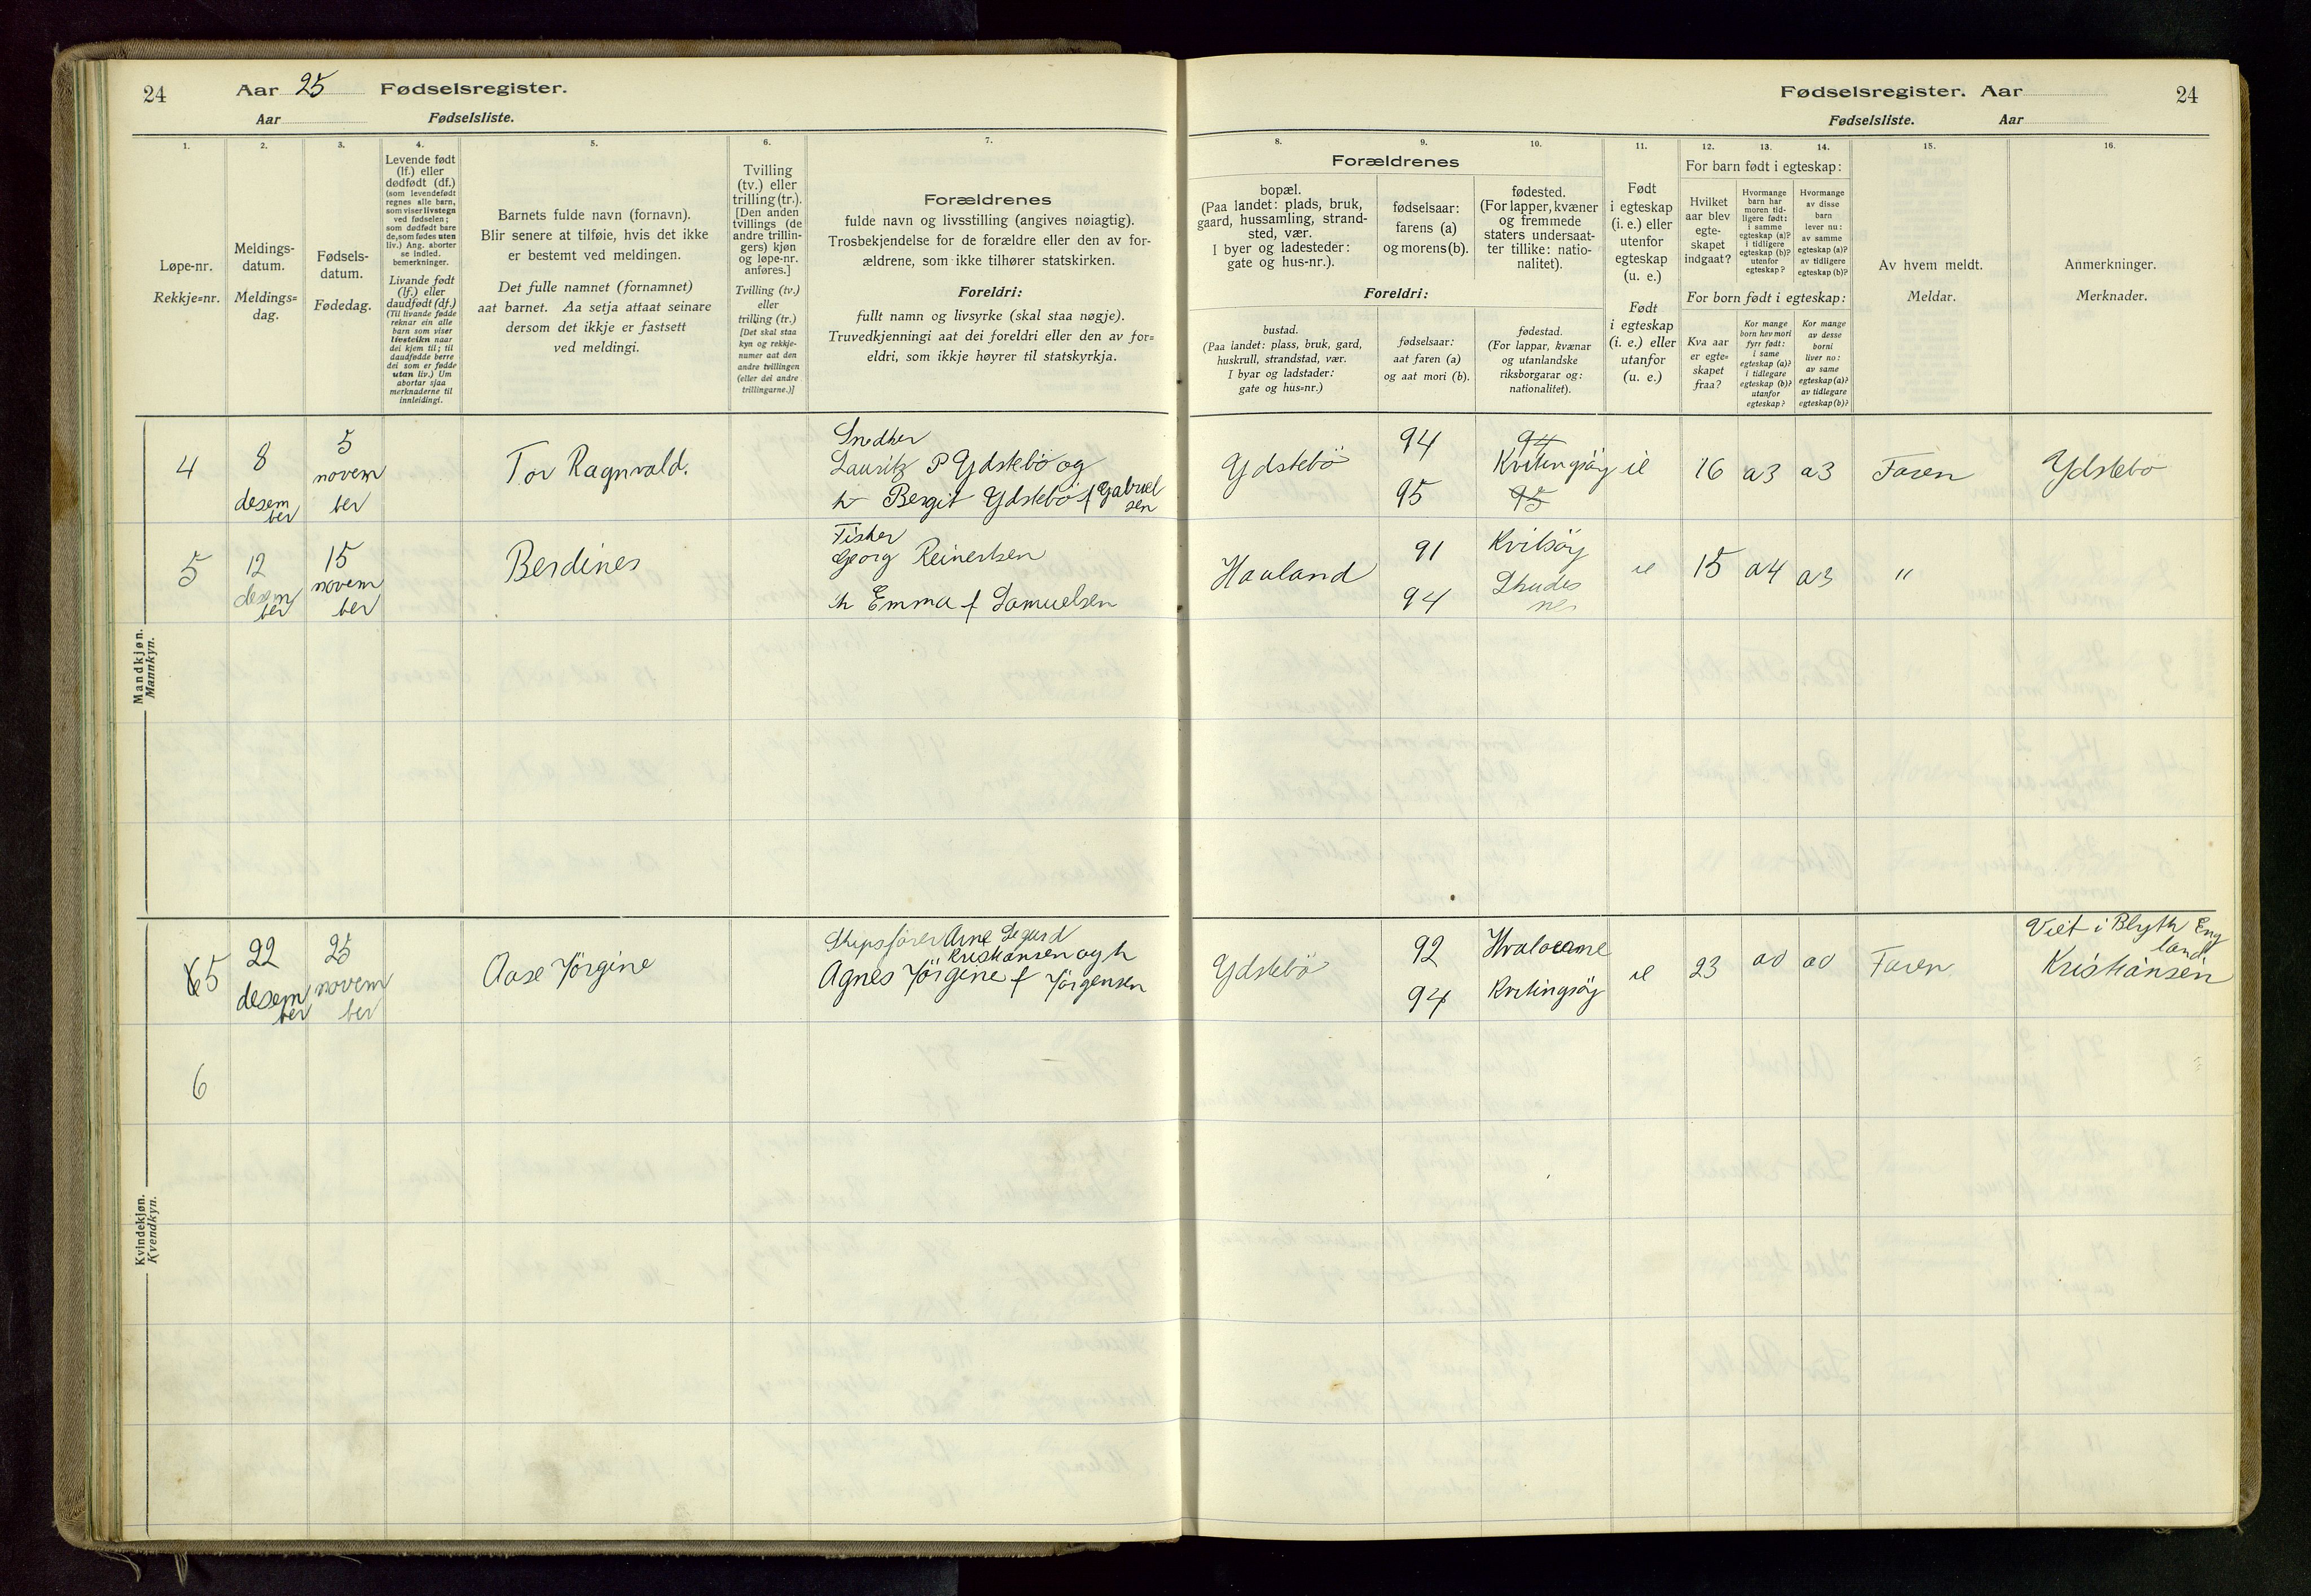 24 Aar 25 Fødselsregister.
Aar Fødselsliste.
Fødselsregister. Aar 24
Fødselsliste. Aar
1.
Løpe-nr.
Rekkje=nr.
2.
Meldings-
datum.
Meldings=
dag.
3.
Fødsels-
datum.
Fødedag.
4.
Levende født
(lf.) eller
dødfødt (df.)
(som levendefødt
regnes alle barn,
som viser livstegn
ved fødselen;
som dødfødt bare
de, som fødes uten
liv.) Ang. aborter
se indled.
bemerkninger.
Livande født
(lf.) eller
daudfødt (df.)
(Til livande fødde
reknar ein alle
barn som viser
livsteikn naar
dei kjem til; til
daudfødde berre
dei som er fødde
utan liv.) Um
abortar sjaa
merknaderne til
innleidingi.
5.
Barnets fulde navn (fornavn).
Blir senere at tilføie, hvis det ikke
er bestemt ved meldingen.
Det fulle namnet (fornamnet)
aat barnet. Aa setja attaat seinare
dersom det ikkje er fastsett
ved meldingi.
6.
Tvilling
(tv.) eller
trilling (tr.).
[Den anden
tvillings (de
andre trillin-
gers) kjøn
og løpe-nr.
anføres.]
Tvilling (tv.)
eller
trilling (tr.)
[Det skal staa
kyn og rekkje-
numer aat den
andre tvillingen
(eller dei andre
trillingarne.)]
7.
Forældrenes
fulde navn og livsstilling (angives nøiagtig).
Trosbekjendelse for de forældre eller den av for-
ældrene, som ikke tilhører statskirken.
Foreldri:
fullt namn og livsyrke (skal staa nøgje).
Truvedkjenningi aat dei foreldri eller den av for=
eldri, som ikkje høyrer til statskyrkja.
Forældrenes
8.
bopæl.
(Paa landet: plads, bruk,
gaard, hussamling, strand-
sted, vær.
I byer og ladesteder:
gate og hus-nr.).
Foreldri:
bustad.
(Paa landet: plass, bruk, gard,
huskrull, strandstad, vær.
I byar og ladstader:
gate og hus=nr.)
9.
fødselsaar:
farens (a)
og morens (b).
fødselsaar:
aat faren (a)
og aat mori (b).
10.
fødested.
(For lapper, kvæner
og fremmede
staters undersaat-
ter tillike: natio-
nalitet).
fødestad.
(For lappar, kvænar
og utanlandske
riksborgarar og:
nationalitet).
11.
Født
i egteskap
(i. e.) eller
utenfor
egteskap
(u. e.)
Født
i egteskap
(i. e.) eller
utanfor
(u. e.)
For barn født i egteskap:
12.
Hvilket
aar blev
egte-
skapet
indgaat?
13.
Hvormange
barn har
moren tid-
ligere født:
i samme
egteskap (a)?
i tidligere
egteskap (b)?
utenfor
egteskap?
14.
Hvormange
av disse
barn
lever nu:
av samme
egteskap (a)?
av tidligere
egteskap (b)?
For born født i egteskap:
Kva aar
er egte=
skapet
fraa?
Kor mange
born hev mori
fyrr født:
i same
egteskap (a)?
i tidlegare
egteskap (b)?
utanfor
egteskap?
Kor mange
av desse
borni
liver no:
av same
egteskap (a)?
av tidlegare
egteskap (b)?
15.
Av hvem meldt.
Meldar.
16.
Anmerkninger.
Merknader.
Mandkjøn.
Mannkyn.
4
8
desem
ber
5
novem
ber
Tor Ragnvald.
Snedker
Lauritz P Ydstebö og
h Bergit Ydstebö f Gabriel
sen
Ydstebö
94
95
94
Kvitingsöy
95
ie
16 a3 a3 Faren Ydstebö
5
12
desem
ber
15
novem
ber
Berdines
Fisker
Georg Reinertsen
h Emma f Samuelsen
Hauland
91
94
Kvitsöy
Skudes
nes
ie
15 a4 a3 "
Kvindekjøn.
Kvendkyn.
5
22
desem
ber
25
novem
ber
Aase Jörgine
Skipsförer Arne Segurd
Kristiansen og h
Agnes Jörgine f Jörgensen
Ydstebö
92
94
Hvaloerne
Kvitingsöy
ie
23 a0 a0 Faren
Viet i Blyth Eng
land
Kristiansen
6